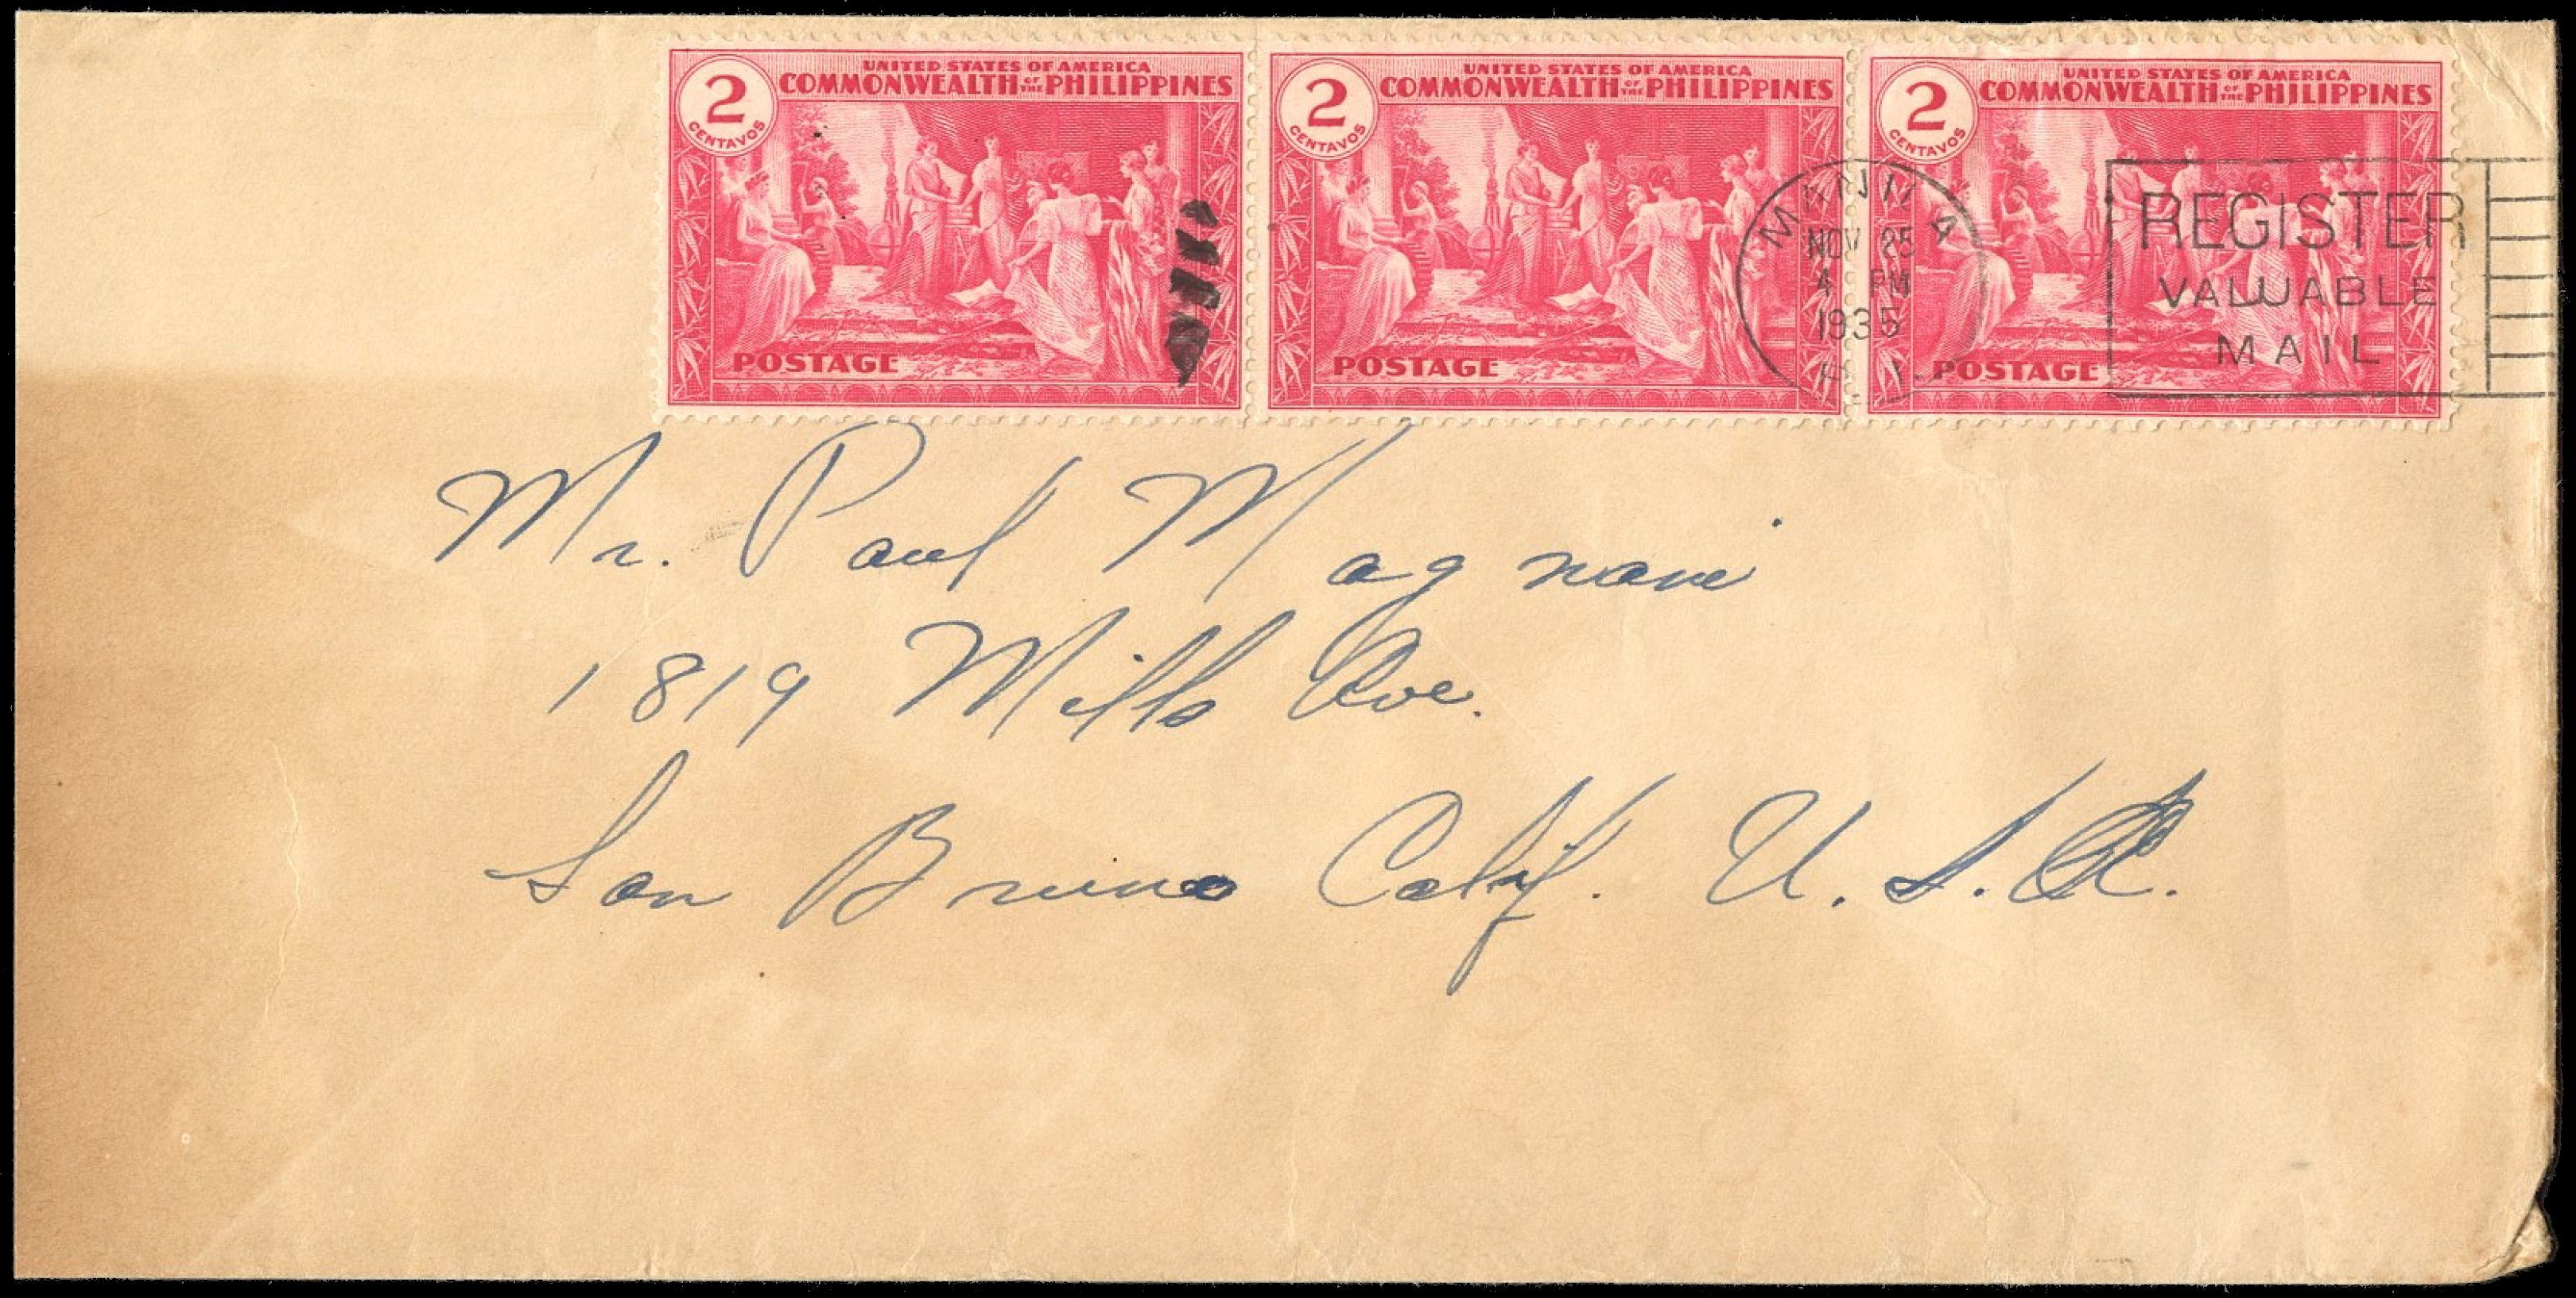 2
CENTAVOS
UNITED STATES OF AMERICA
COMMONWEALTH OF THE PHILIPPINES
POSTAGE
2
CENTAVOS
UNITED STATES OF AMERICA
COMMONWEALTH OF THE PHILIPPINES
POSTAGE
2
CENTAVOS
UNITED STATES OF AMERICA
COMMONWEALTH OF THE PHILIPPINES
POSTAGE
MANILA
NOV 25
4 PM
1935
P. I.
REGISTER
VALUABLE
MAIL
Mr. Paul Magnani
1819 Mills Ave.
San Bruno Calif. U.S.A.